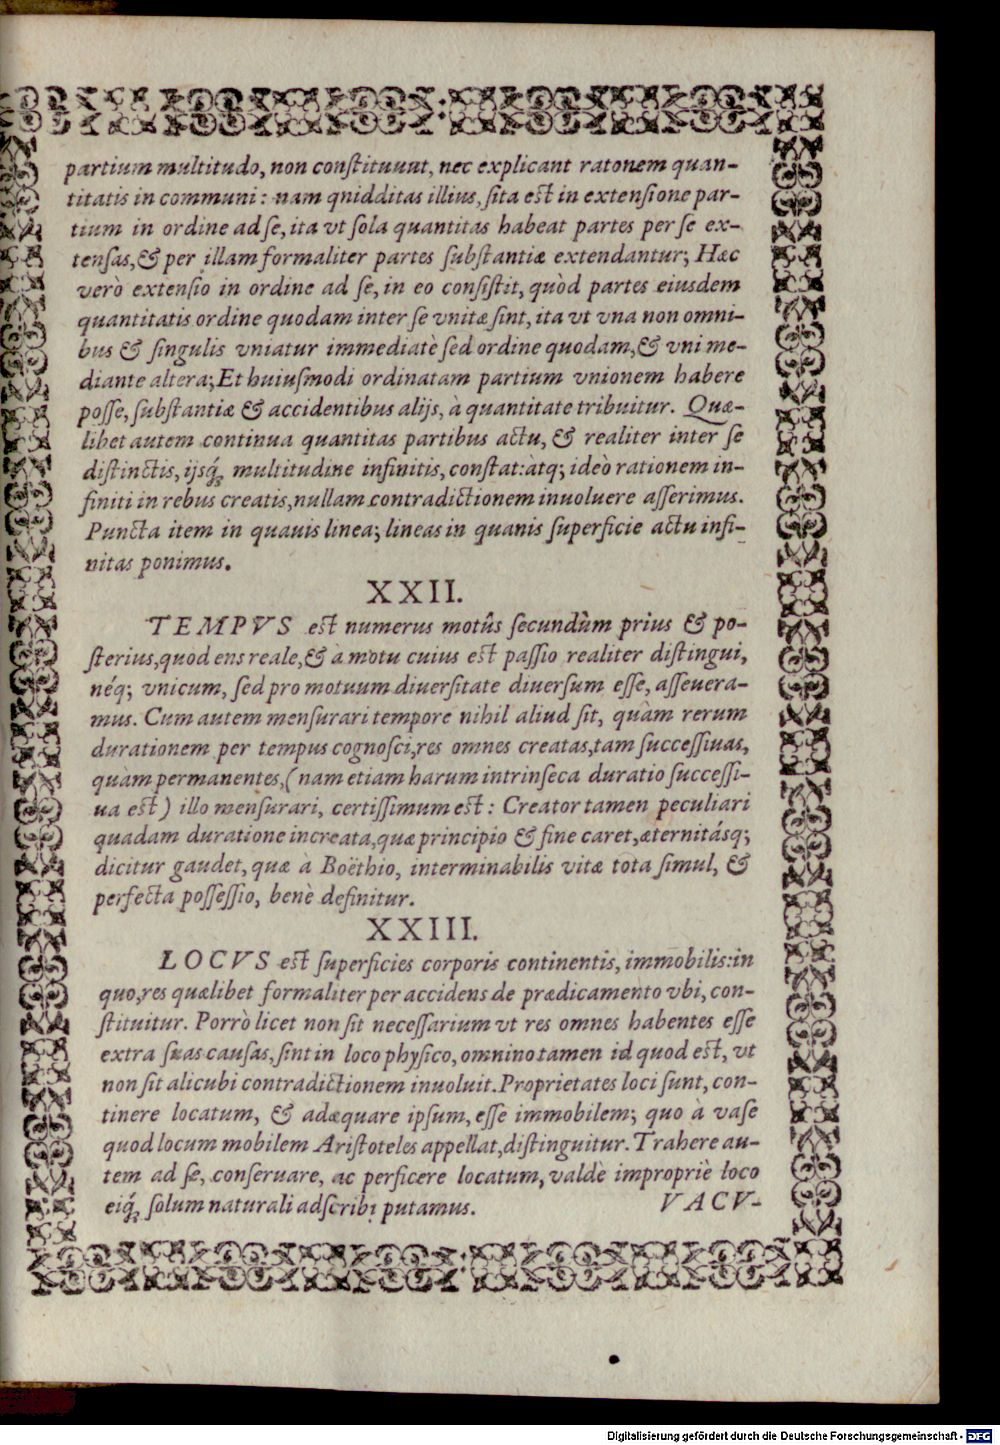 partium multitudo, non conſtituunt, nec explicant ratonem quan-
titatis in communi: nam qnidditas illius, ſita eſt in extenſione par-
tium in ordine ad ſe, ita vt ſola quantitas habeat partes per ſe ex-
tenſas, & per illam formaliter partes ſubſtantiæ extendantur; Hæc
verò extenſio in ordine ad ſe, in eo conſiſtit, quòd partes eiusdem
quantitatis ordine quodam inter ſe vnitæ ſint, ita vt vna non omni-
bus & ſingulis vniatur immediatè ſed ordine quodam, & vni me-
diante altera; Et huiuſmodi ordinatam partium vnionem habere
poſſe, ſubſtantiæ & accidentibus alijs, à quantitate tribuitur. Quæ-
libet autem continua quantitas partibus actu, & realiter inter ſe
diſtinctis, ijsq́; multitudine infinitis, conſtat: àtq; ideò rationem in-
finiti in rebus creatis, nullam contradictionem inuoluere aſſerimus.
Puncta item in quauis linea; lineas in quanis ſuperficie actu infi-
nitas ponimus.
XXII.
TEMPVS eſt numerus motûs ſecundùm prius & po-
ſterius, quod ens reale, & à motu cuius eſt paſſio realiter diſtingui,
néq; vnicum, ſed pro motuum diuerſitate diuerſum eſſe, aſſeuera-
mus. Cum autem menſurari tempore nihil aliud ſit, quàm rerum
durationem per tempus cognoſci, res omnes creatas, tam ſucceſſiuas,
quam permanentes, (nam etiam harum intrinſeca duratio ſucceſſi-
ua eſt) illo menſurari, certiſſimum eſt: Creator tamen peculiari
quadam duratione increata, quæ principio & fine caret, æternitásq;
dicitur gaudet, quæ à Boëthio, interminabilis vitæ tota ſimul, &
perfecta poſſeſſio, benè definitur.
XXIII.
LOCVS eſt ſuperficies corporis continentis, immobilis: in
quo, res quælibet formaliter per accidens de prædicamento vbi, con-
ſtituitur. Porrò licet non ſit neceſſarium vt res omnes habentes eſſe
extra ſuas cauſas, ſint in loco phyſico, omnino tamen id quod eſt, vt
non ſit alicubi contradictionem inuoluit. Proprietates loci ſunt, con-
tinere locatum, & adæquare ipſum, eſſe immobilem; quo à vaſe
quod locum mobilem Ariſtoteles appellat, diſtinguitur. Trahere au-
tem ad ſe, conſeruare, ac perficere locatum, valdè impropriè loco
eiq́; ſolum naturali adſcribi putamus.
VACV-
Digitalisierung gefördert durch die Deutsche Forschungsgemeinschaft - DFG